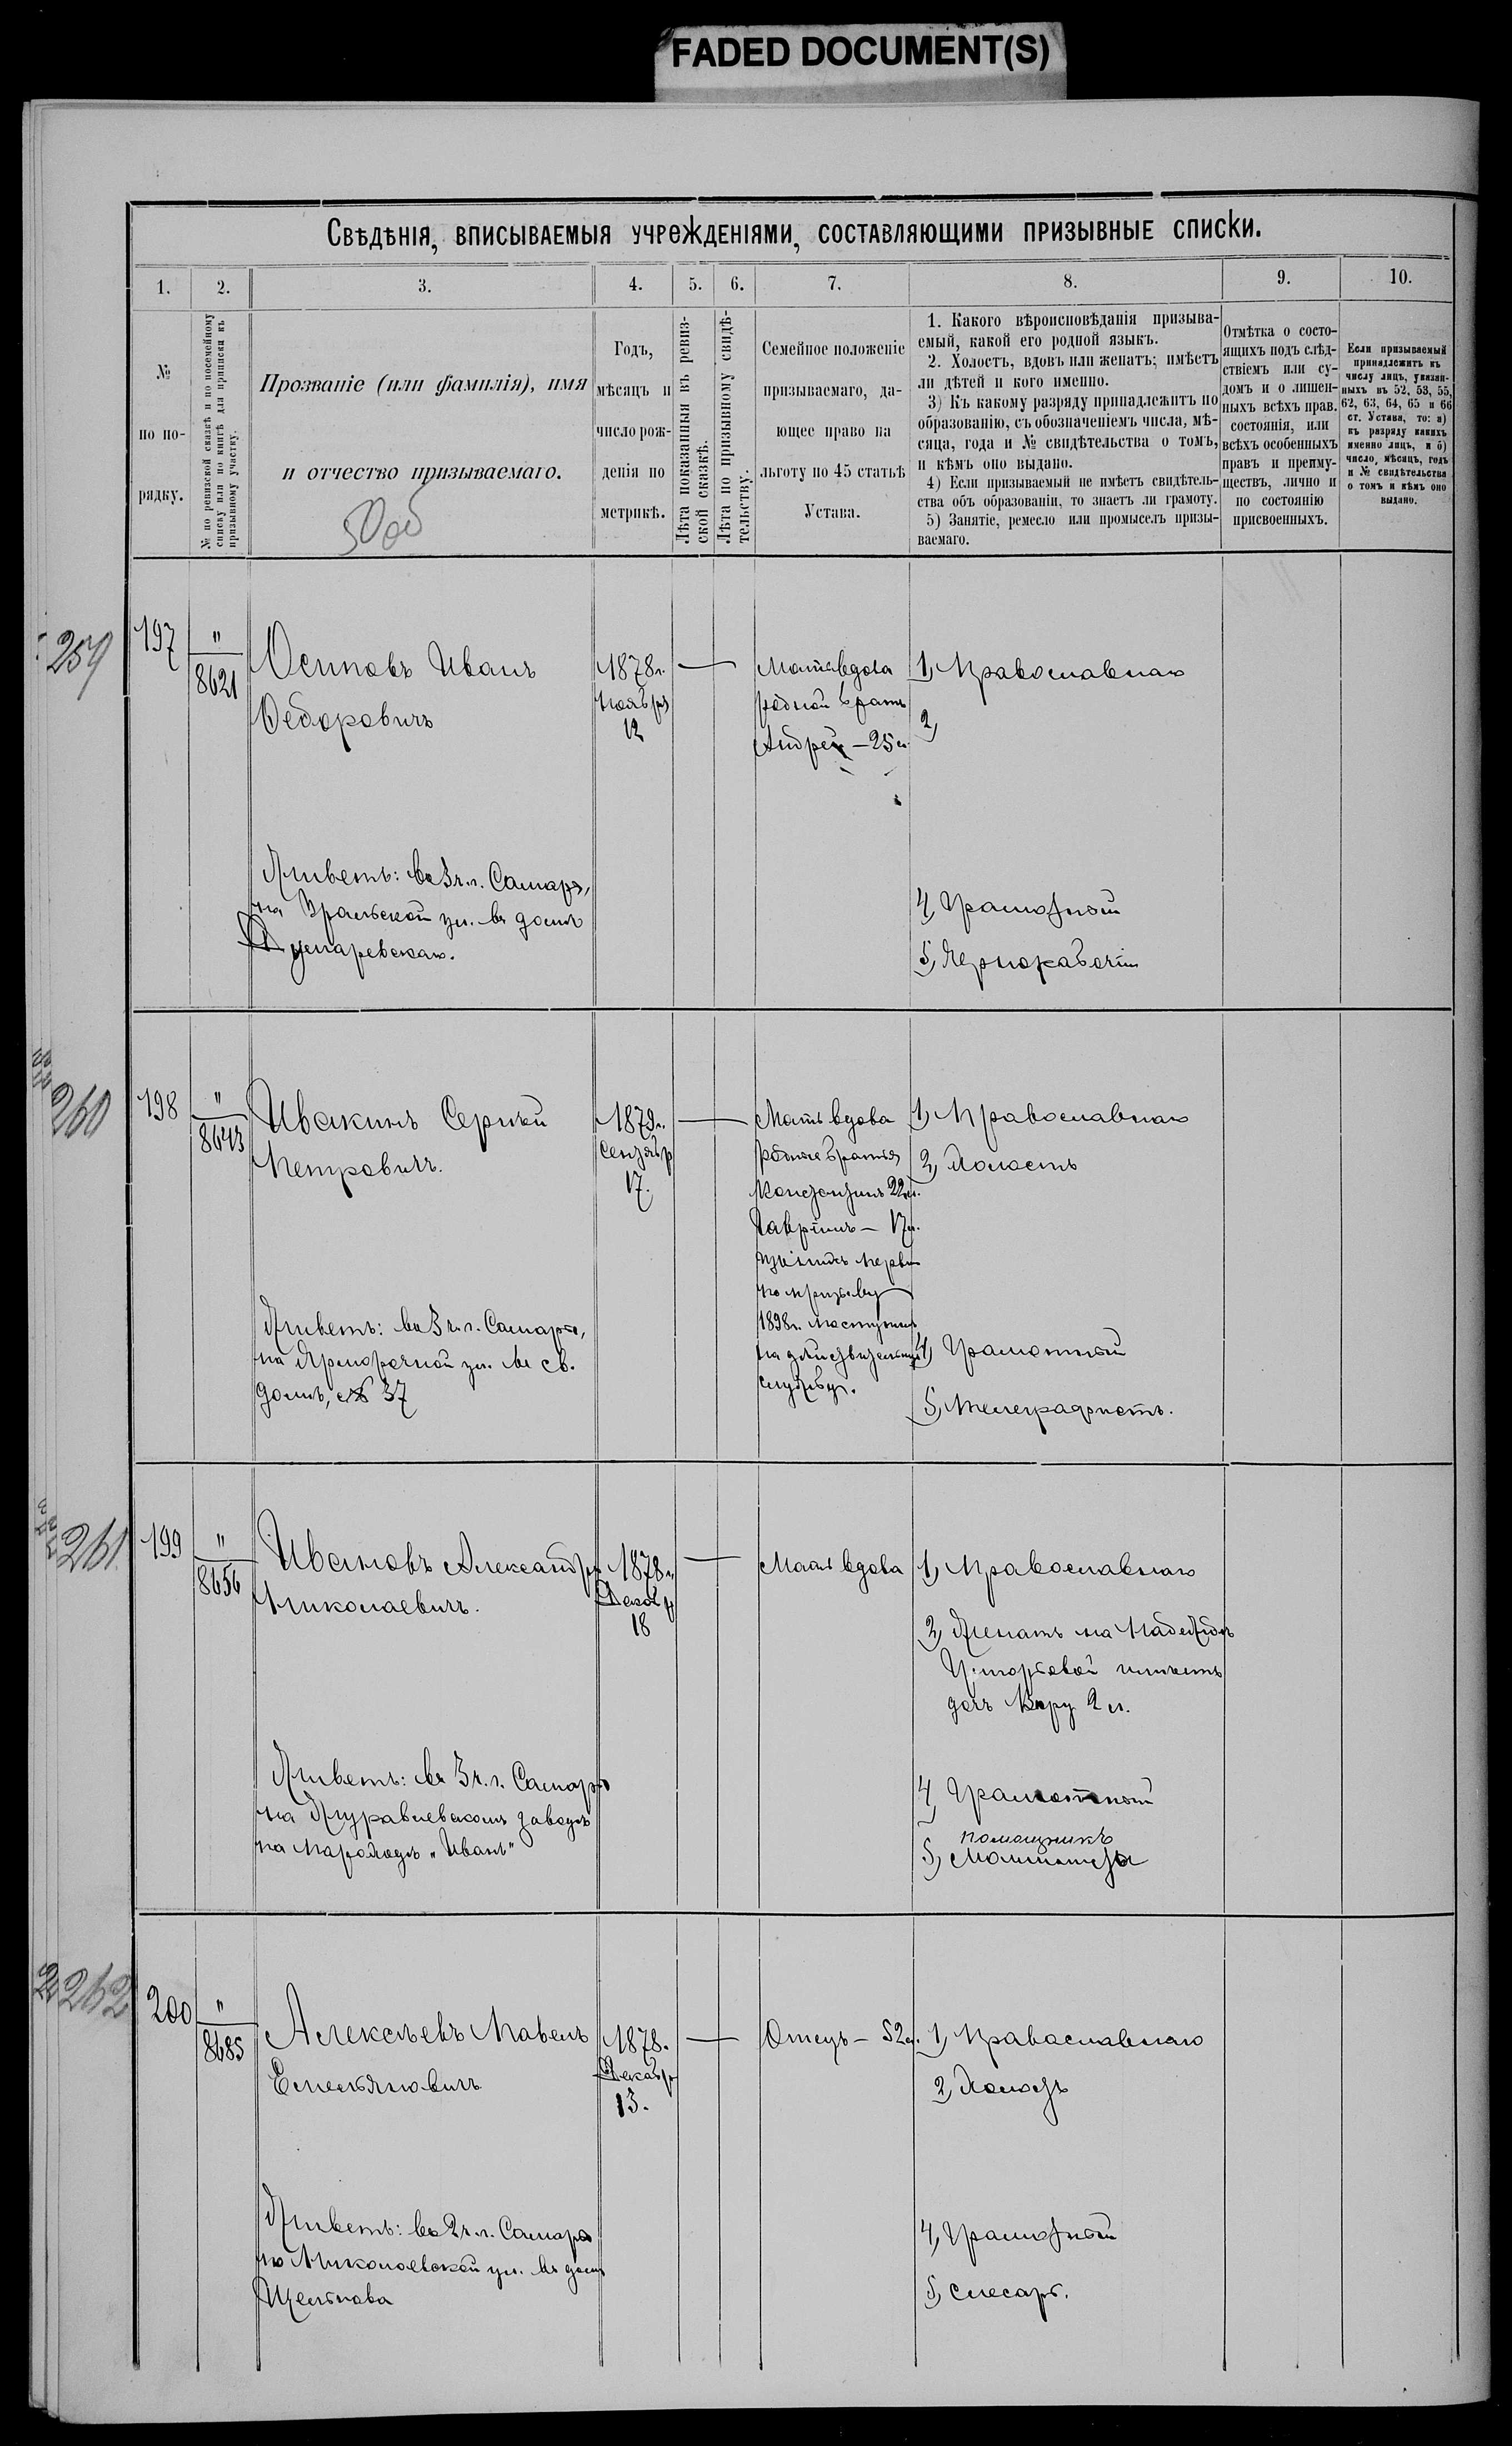 FADED DOCUMENT(S)
Свѣдѣнія, вписываемыя учрежденіями, составляющими призывные списки.
1. 2. 3. 4. 5. 6. 7. 8. 9. 10.
№
по по-
рядку.
№ по ревизской сказкѣ и по посемейному
списку или по книгѣ для приписки къ
призывному участку.
Прозваніе (или фамилія), имя
и отчество призываемаго.
Годъ,
мѣсяцъ и
число рож-
денія по
метрикѣ.
Лѣта показанныя въ ревиз-
ской сказкѣ.
Лѣта по призывному свидѣ-
тельству.
Семейное положеніе
призываемаго, да-
ющее право на
льготу по 45 статьѣ
Устава.
1. Какого вѣроисповѣданія призыва-
емый, какой его родной языкъ.
2. Холостъ, вдовъ или женатъ; имѣетъ
ли дѣтей и кого именно.
3) Къ какому разряду принадлежитъ по
образованію, съ обозначеніемъ числа, мѣ-
сяца, года и № свидѣтельства о томъ,
и кѣмъ оно выдано.
4) Если призываемый не имѣетъ свидѣтель-
ства объ образованіи, то знаетъ ли грамоту.
5) Занятіе, ремесло или промыселъ призы-
ваемаго.
Отмѣтка о состо-
ящихъ подъ слѣд-
ствіемъ или су-
домъ и о лишен-
ныхъ всѣхъ прав.
состоянія, или
всѣхъ особенныхъ
правъ и преиму-
ществъ, лично и
по состоянію
присвоенныхъ.
Если призываемый
принадлежитъ къ
числу лицъ, указан-
ныхъ въ 52, 53, 55,
62, 63, 64, 65 и 66
ст. Устава, то: а)
къ разряду какихъ
именно лицъ, и б)
число, мѣсяцъ, годъ
и № свидѣтельства
о томъ и кѣмъ оно
выдано.
259
197
"
8621
Осиповъ Иванъ
Ѳедоровичъ
1878 г.
Ноября
12
Мать вдова
родной братъ
Андрей – 25 л.
1, Православнаго
2,
Живетъ: въ 3 ч. г. Самары,
на Уральской ул. въ домѣ
4, Грамотный
5, Чернорабочій
260
198
"
8643
Ивакинъ Сергѣй
Петровичъ.
1879 г.
Сентябр
17.
Мать вдова
родные братья
Константинъ 22 л.
Гавріилъ – 17 л.
изъ нихъ первый
по призыву
1898 г. поступилъ
на дѣйствительную
службу.
1, Православнаго
2, Холостъ
Живетъ: въ 3 ч. г. Самары,
на Ярморочной ул. въ св.
домѣ, № 37
4, Грамотный
5, Телеграфистъ.
261
199
"
8656
Ивановъ Александръ
Николаевичъ.
1878 г.
Декабря
18
Мать вдова
1, Православнаго
2, Женатъ на Надеждѣ
имѣетъ
дочь Вѣру 2 л.
Живетъ: въ 3 ч. г. Самары
на Журавлевскомъ заводѣ
на пароходѣ „Иванъ"
4, Грамотный
помощникъ
5, Машиниста
262
200
"
8685
Алексѣевъ Павелъ
Емельяновичъ
1878.
Декабря
13.
Отецъ – 52 л.
1, Православнаго
2, Холостъ
Живетъ: во 2 ч. г. Самары
по Николаевской ул. въ домѣ
4, Грамотный
5, слесарь.